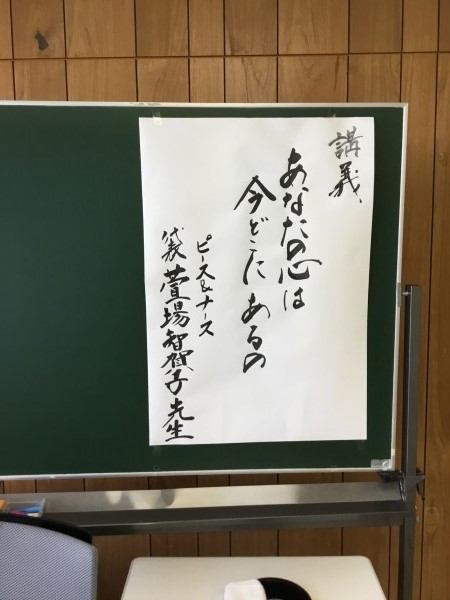 講義
あなたの心は
今どこにあるの
ピース&ナース
代表 萱場智賀子先生